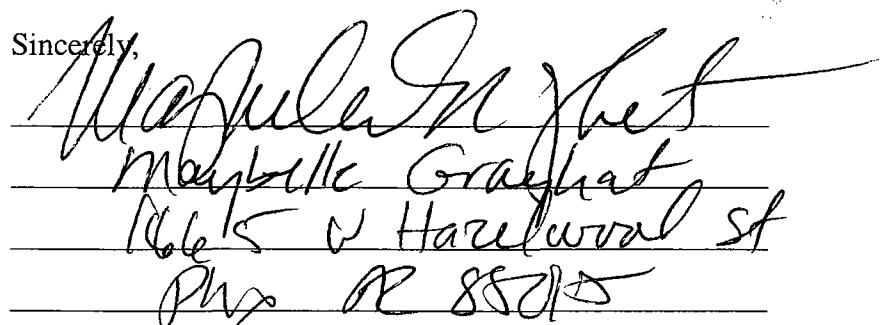 Sincerely,
Maybelle Grayhat
W Hazelwood St
Phx AZ 85015